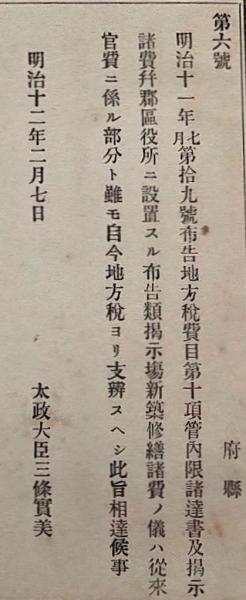 第六號
府縣
明治十一年七月第拾九號布告地方稅費目第十項管內限諸達書及揭示
諸費幷郡區役所ニ設置スル布告類揭示塲新築修繕諸費ノ儀ハ從來
官費ニ係ル部分ト雖モ自今地方稅ヨリ支辨スヘシ此旨相達候事
明治十二年二月七日
太政大臣三條實美